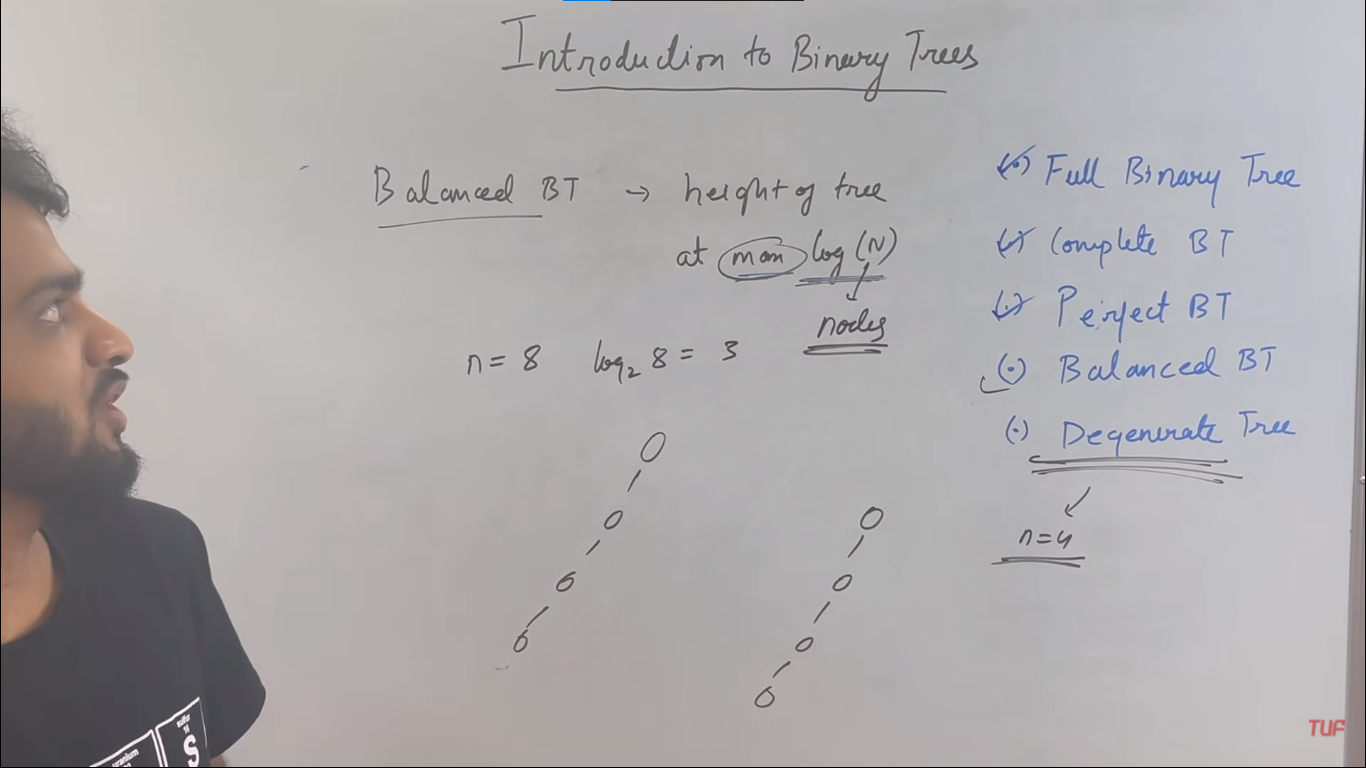 Introduction to Binary Trees
Balanced BT → height of tree
at max log (N)
nodes
n = 8 log₂ 8 = 3
(•) Full Binary Tree
(•) Complete BT
(•) Perfect BT
(•) Balanced BT
(•) Degenerate Tree
n=4
uranium
sulfur
16
S
TUF